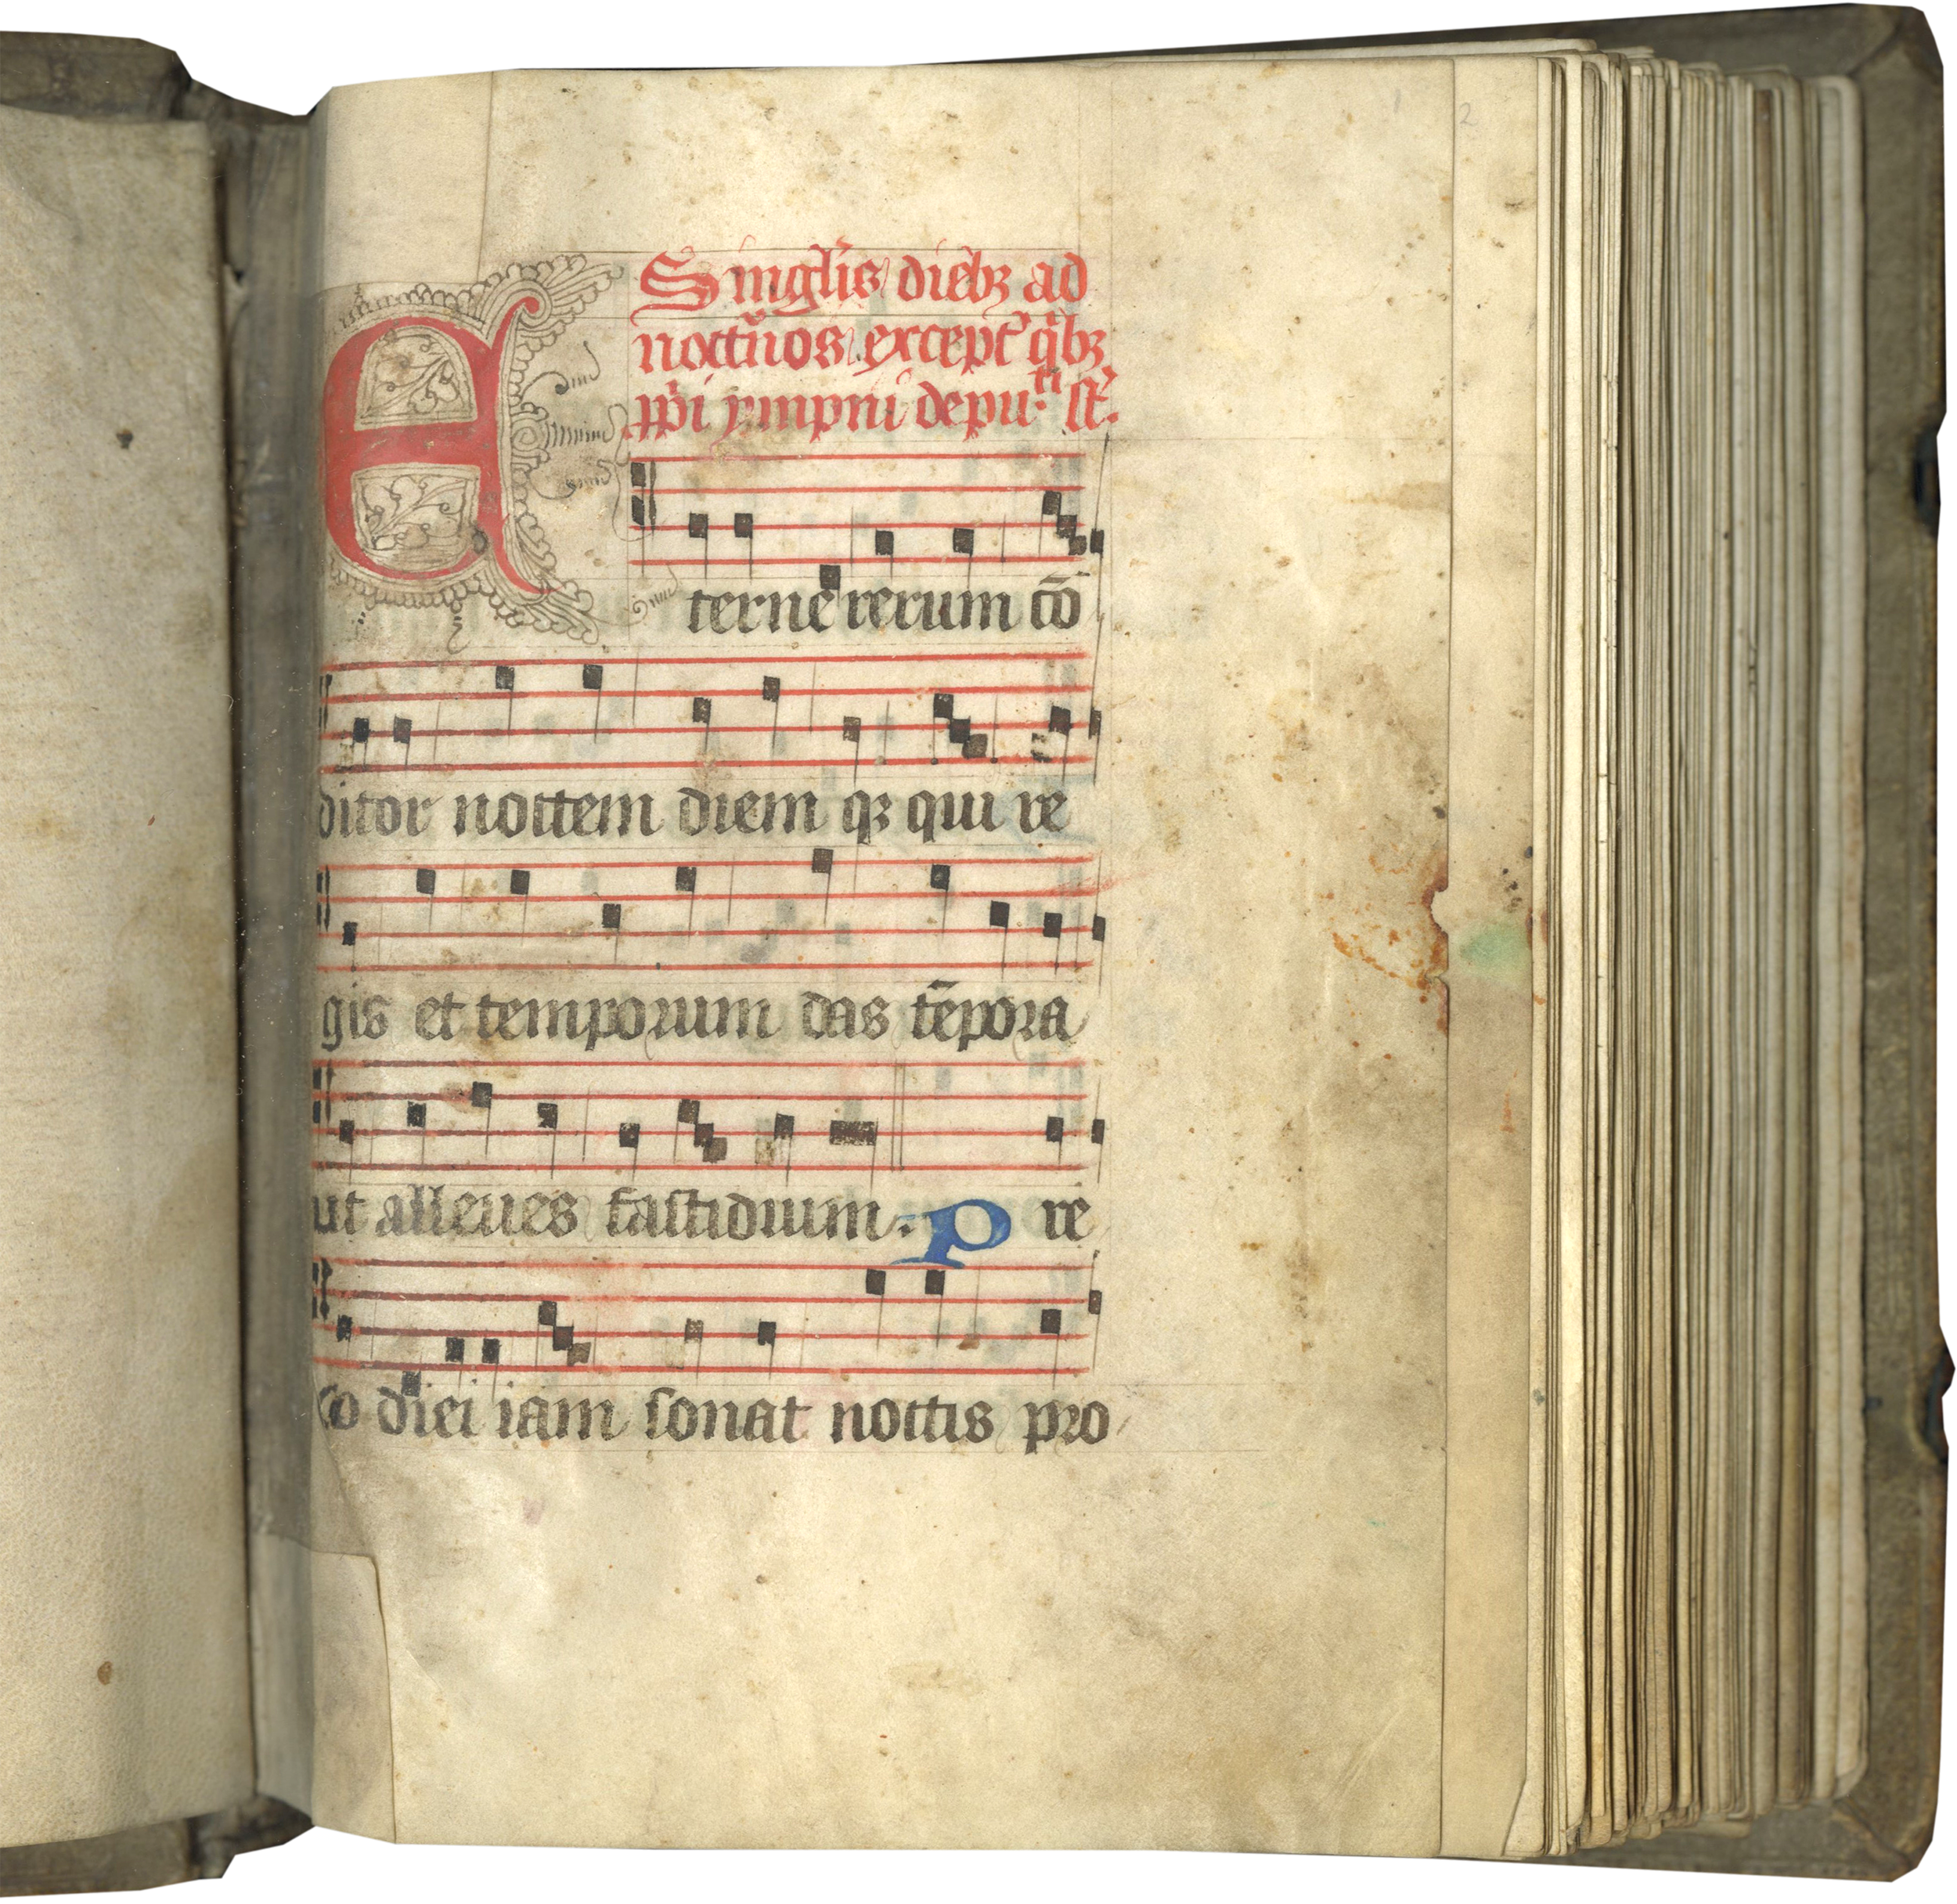 Singlis dieb₃ ad
noctnos except q̇b₃
ꝓpi ympni depu.ti st.
Eterne rerum cō
ditor noctem diem q₃ qui re
gis et temporum das tēpora
ut alleues fastidium. P re
co diei iam sonat noctis pro
2